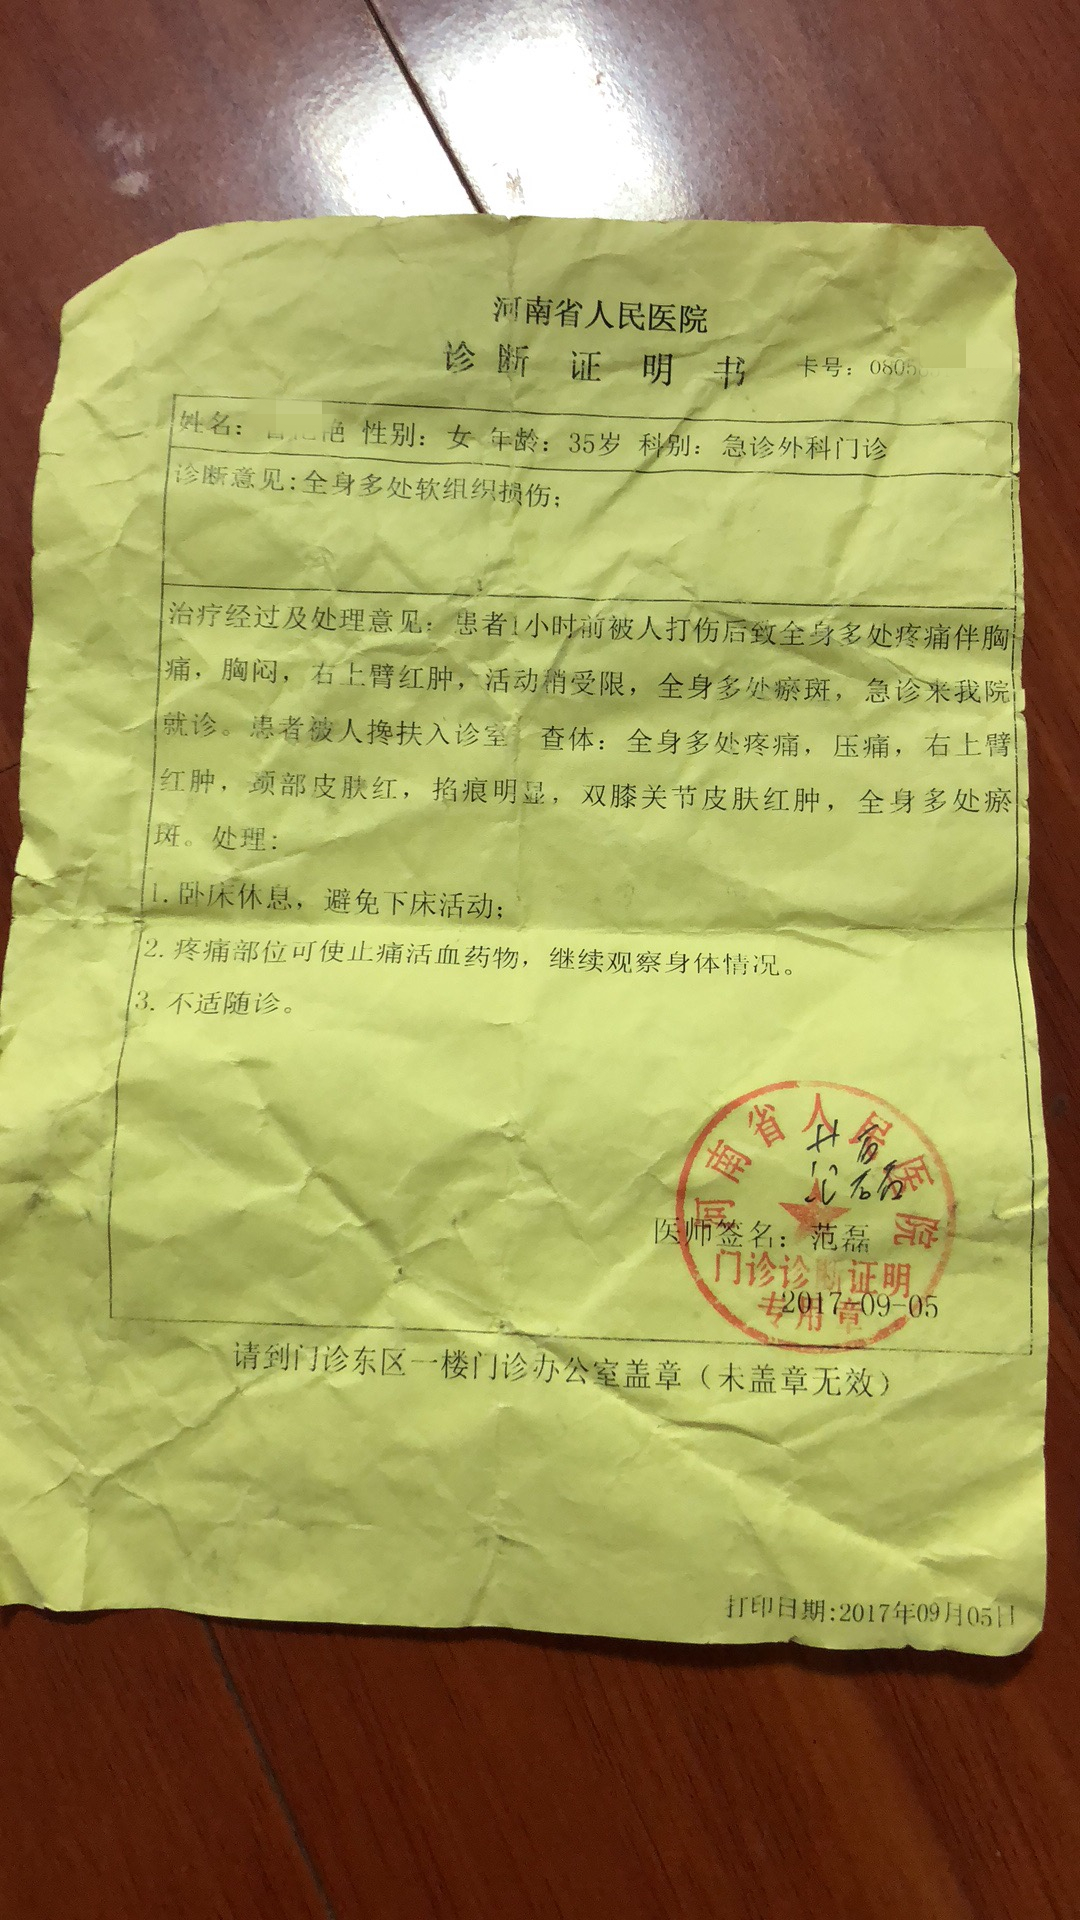 河南省人民医院
诊断证明书 卡号：0805
姓名： 艳 性别：女 年龄：35岁 科别：急诊外科门诊
诊断意见：全身多处软组织损伤；
治疗经过及处理意见：患者1小时前被人打伤后致全身多处疼痛伴胸
痛，胸闷，右上臂红肿，活动稍受限，全身多处瘀斑，急诊来我院
就诊。患者被人搀扶入诊室 查体：全身多处疼痛，压痛，右上臂
红肿，颈部皮肤红，掐痕明显，双膝关节皮肤红肿，全身多处瘀
斑。处理：
1.卧床休息，避免下床活动；
2.疼痛部位可使止痛活血药物，继续观察身体情况。
3.不适随诊。
河南省人民医院
医师签名：范磊
门诊诊断证明
专用章
2017-09-05
请到门诊东区一楼门诊办公室盖章（未盖章无效）
打印日期:2017年09月05日